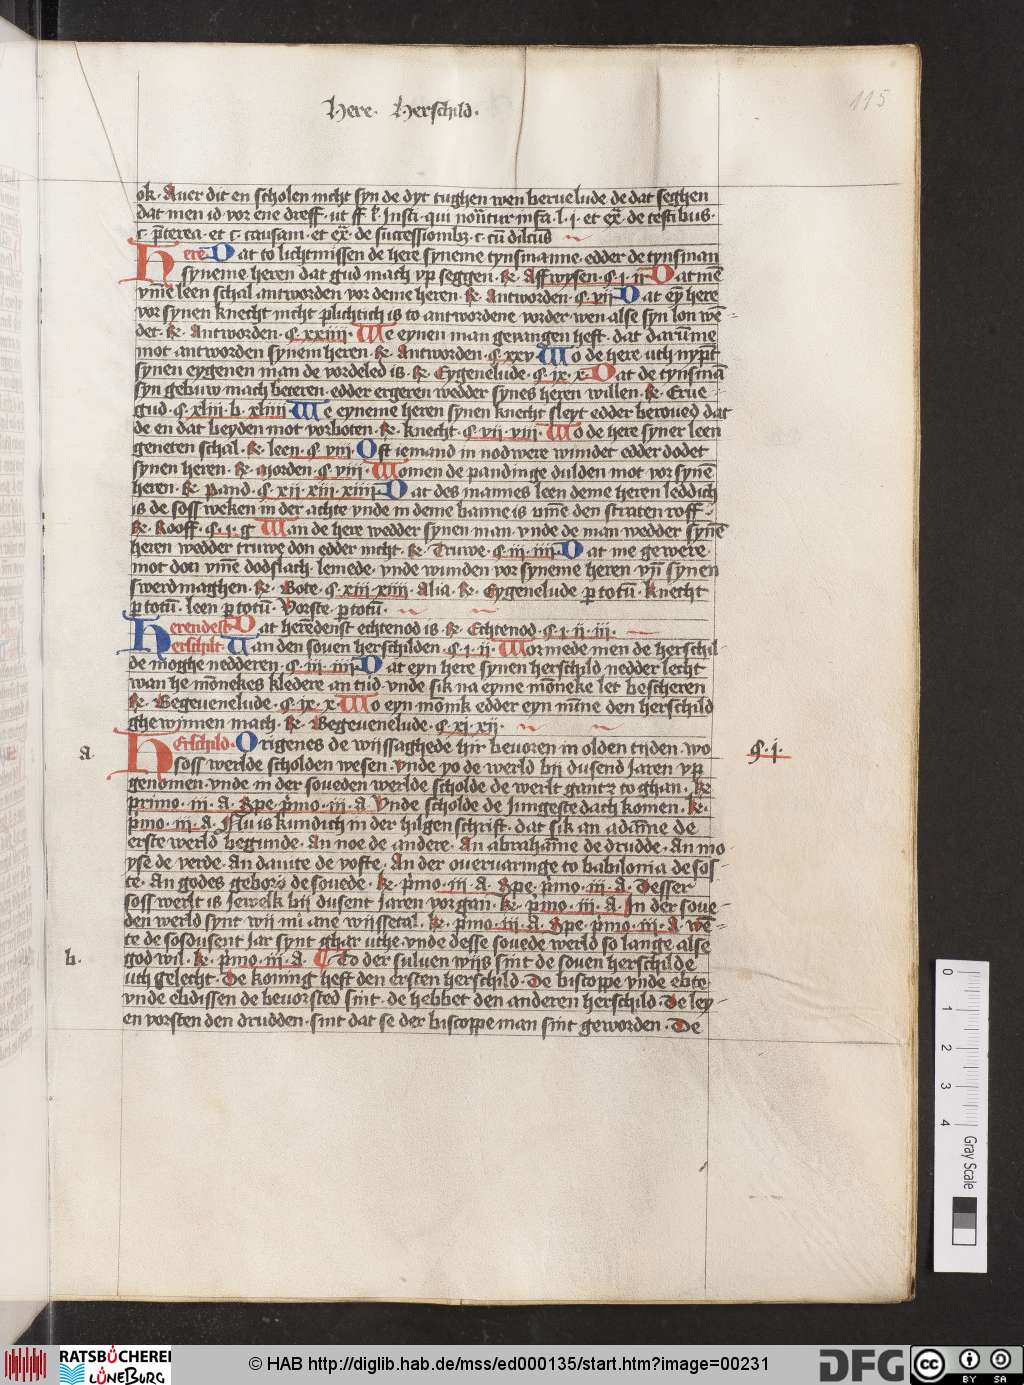 115
Here. Herschild.
ok. Aver dit en scholen nicht syn de dyt tughen wen berve lude de dat seghen
dat men id vor ene dreff. ut ff l. Insti. qui et ex̄. de testibus.
c. p̄terea. et c. causam. et ex̄. de successionibꝫ. c. cū dilctus
Here Dat to lichtmissen de here syneme tynsmanne. edder de tynsman
syneme heren dat gud mach vp seggen. Re. Affwysen. ς. i. ii Dat me
vm̄e leen schal antworden vor deme heren. Re. Antworden. ς. vii Dat ey̅ here
vor synen knecht nicht plichtich is to antwordene vorder. wen alse syn lon we̅
det. Re. Antworden. ς. xxiiii. We eynen man gevangen heft. dat darum̅e
mot antworden synem heren. Re. Antworden. ς. xxv Wo de here uth nyp̄t
synen eygenen man de vordeled is. Re. Eygenelude. ς. ix. x. Dat de tynsmā
syn gebuw mach beteren. edder ergeren wedder synes heren willen. Re. Erve
gud. ς. xliii. b. xliiii We eyneme heren synen knecht sleyt edder beroved dat
de en dat beyden mot vorboten. Re. knecht. ς. vii. viii. Wo de here syner leen
geneten schal. Re. leen. ς. viii. Oft iemand in nodwere wundet edder dodet
synen heren. Re. Morden. ς. viii. Women de pandinge dulden mot vor syne̅
heren. Re. Pand. ς. xii. xiii. xiiii Dat des mannes leen deme heren leddich
is de soss weken in der achte vnde in deme banne is vm̄e den straten roff
Re. Rooff. ς. i. g Wan de here wedder synen man. vnde de man wedder syne̅
heren wedder truwe don edder nicht. Re. Truwe. ς. iii. iiii. Dat me gewere
mot don vm̄e dodslach. lemede. vnde wunden vor syneme heren. vn̄ synen
swerdmaghen. Re. Bote. ς. xiii. xiiii. Alia. Re. Eygenelude p̱ totū. Knecht
p̱ totū. leen p̱ totū. Vorste. p̱ totū.
Herendest Dat herēdenst echtenod is. Re. Echtenod. ς. i. ii. iii.
Herschilt Van den soven herschilden. ς. i. ii. Wormede men de herschil
de moghe nedderen. ς. iii. iiii Dat eyn here synen herschild nedder lecht
wan he mo̅nekes kledere an tüd. vnde sik na eyme mo̅neke let bescheren
Re. Begevenelude. ς. ix. x. Wo eyn monik edder eyn nūne den herschild
ghewinnen mach. Re. Begevenelude. ς. xi. xii.
a. Herschild. Origenes de wijssaghede hir bevoren in olden tijden. wo ς. i.
soss werlde scholden wesen. vnde yo de werld bij dusend Jaren vp
genomen. vnde in der soveden werlde scholde de werlt gantz to ghan. Re.
primo. iii. a. Spe. p̄mo. iii. a Vnde scholde de Jungeste dach komen. Re.
p̄mo. iii. a. Nu is kundich in der hilgen schrift. dat sik an adām̅e de
erste werld begunde. An noe de andere. An abraham̅e de drudde. An mo
yse de verde. An davite de vofte. An der overvaringe to babilonia de sos
te. An godes gebort de sovede. Re. p̄mo. iii. a. Spe. p̄mo. iii. a. Desser
soss werlt is Jewelk bij dusent Jaren vorgan. Re. p̄mo. iii. a. In der sove
den werld synt wij nu ane wijssetal. Re. p̄mo. iii. a. Spe. p̄mo. iii. a. we̅
te de sosdusent Jar synt ghar uthe. vnde desse sovede werld so lange alse
b. god wil. Re. p̄mo. iii. a. To der sulven wijs sint de soven herschilde
uth gelecht. De koning heft den ersten herschild. De biscoppe vnde ebte
vnde ebdissen de bevorsted sint. de hebbet den anderen herschild. De ley
en vorsten den drudden. sint dat se der biscoppe man sint geworden. De
0 1 2 3 4 Gray Scale
RATSBÜCHEREI LÜNEBURG
© HAB http://diglib.hab.de/mss/ed000135/start.htm?image=00231
DFG
cc BY SA